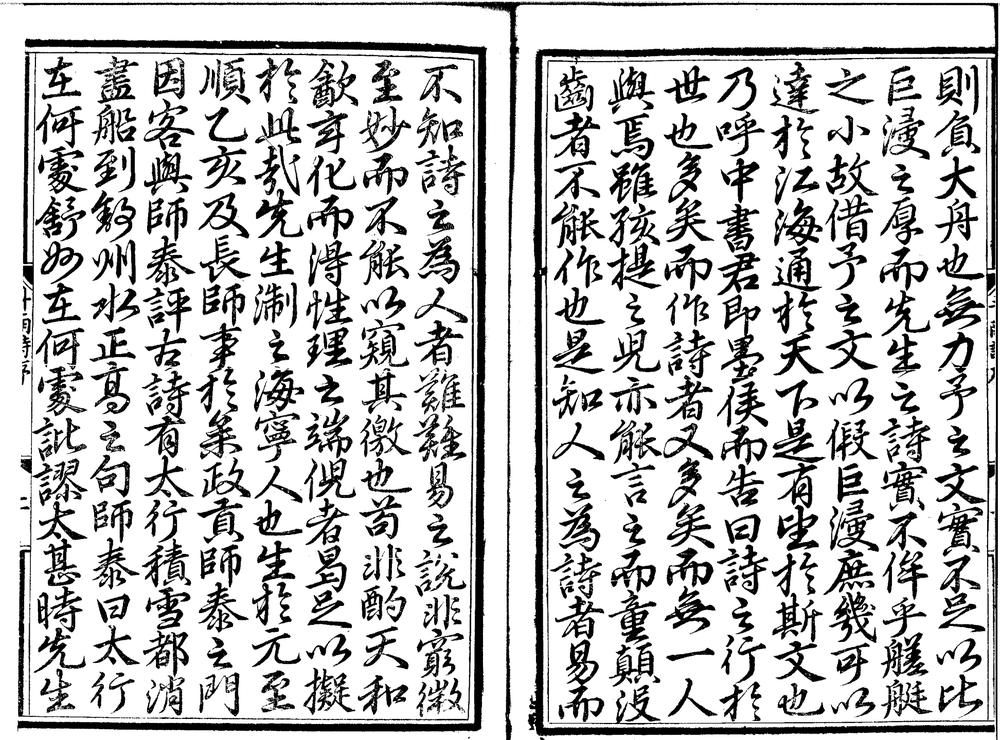 則負大舟也無力予之文實不足以比
巨浸之厚而先生之詩實不侔乎艖艇
之小故借予之文以假巨浸庶幾可以
達於江海通於天下是有望於斯文也
乃呼中書君即墨侯而告曰詩之行於
世也多矣而作詩者又多矣而無一人
與焉雖孩提之兒亦能言之而童顛没
齒者不能作也是知人之為詩者易而
不知詩之為人者難難易之說非窮微
至妙而不能以窺其徼也苟非酌天和
歙玄化而得性理之端倪者曷足以擬
於此哉先生淛之海寧人也生於元至
順乙亥及長師事於集政貢師泰之門
因客與師泰評古詩有太行積雪都消
盡船到敘州水正高之句師泰曰太行
在何處舒妙在何處訛謬太甚時先生